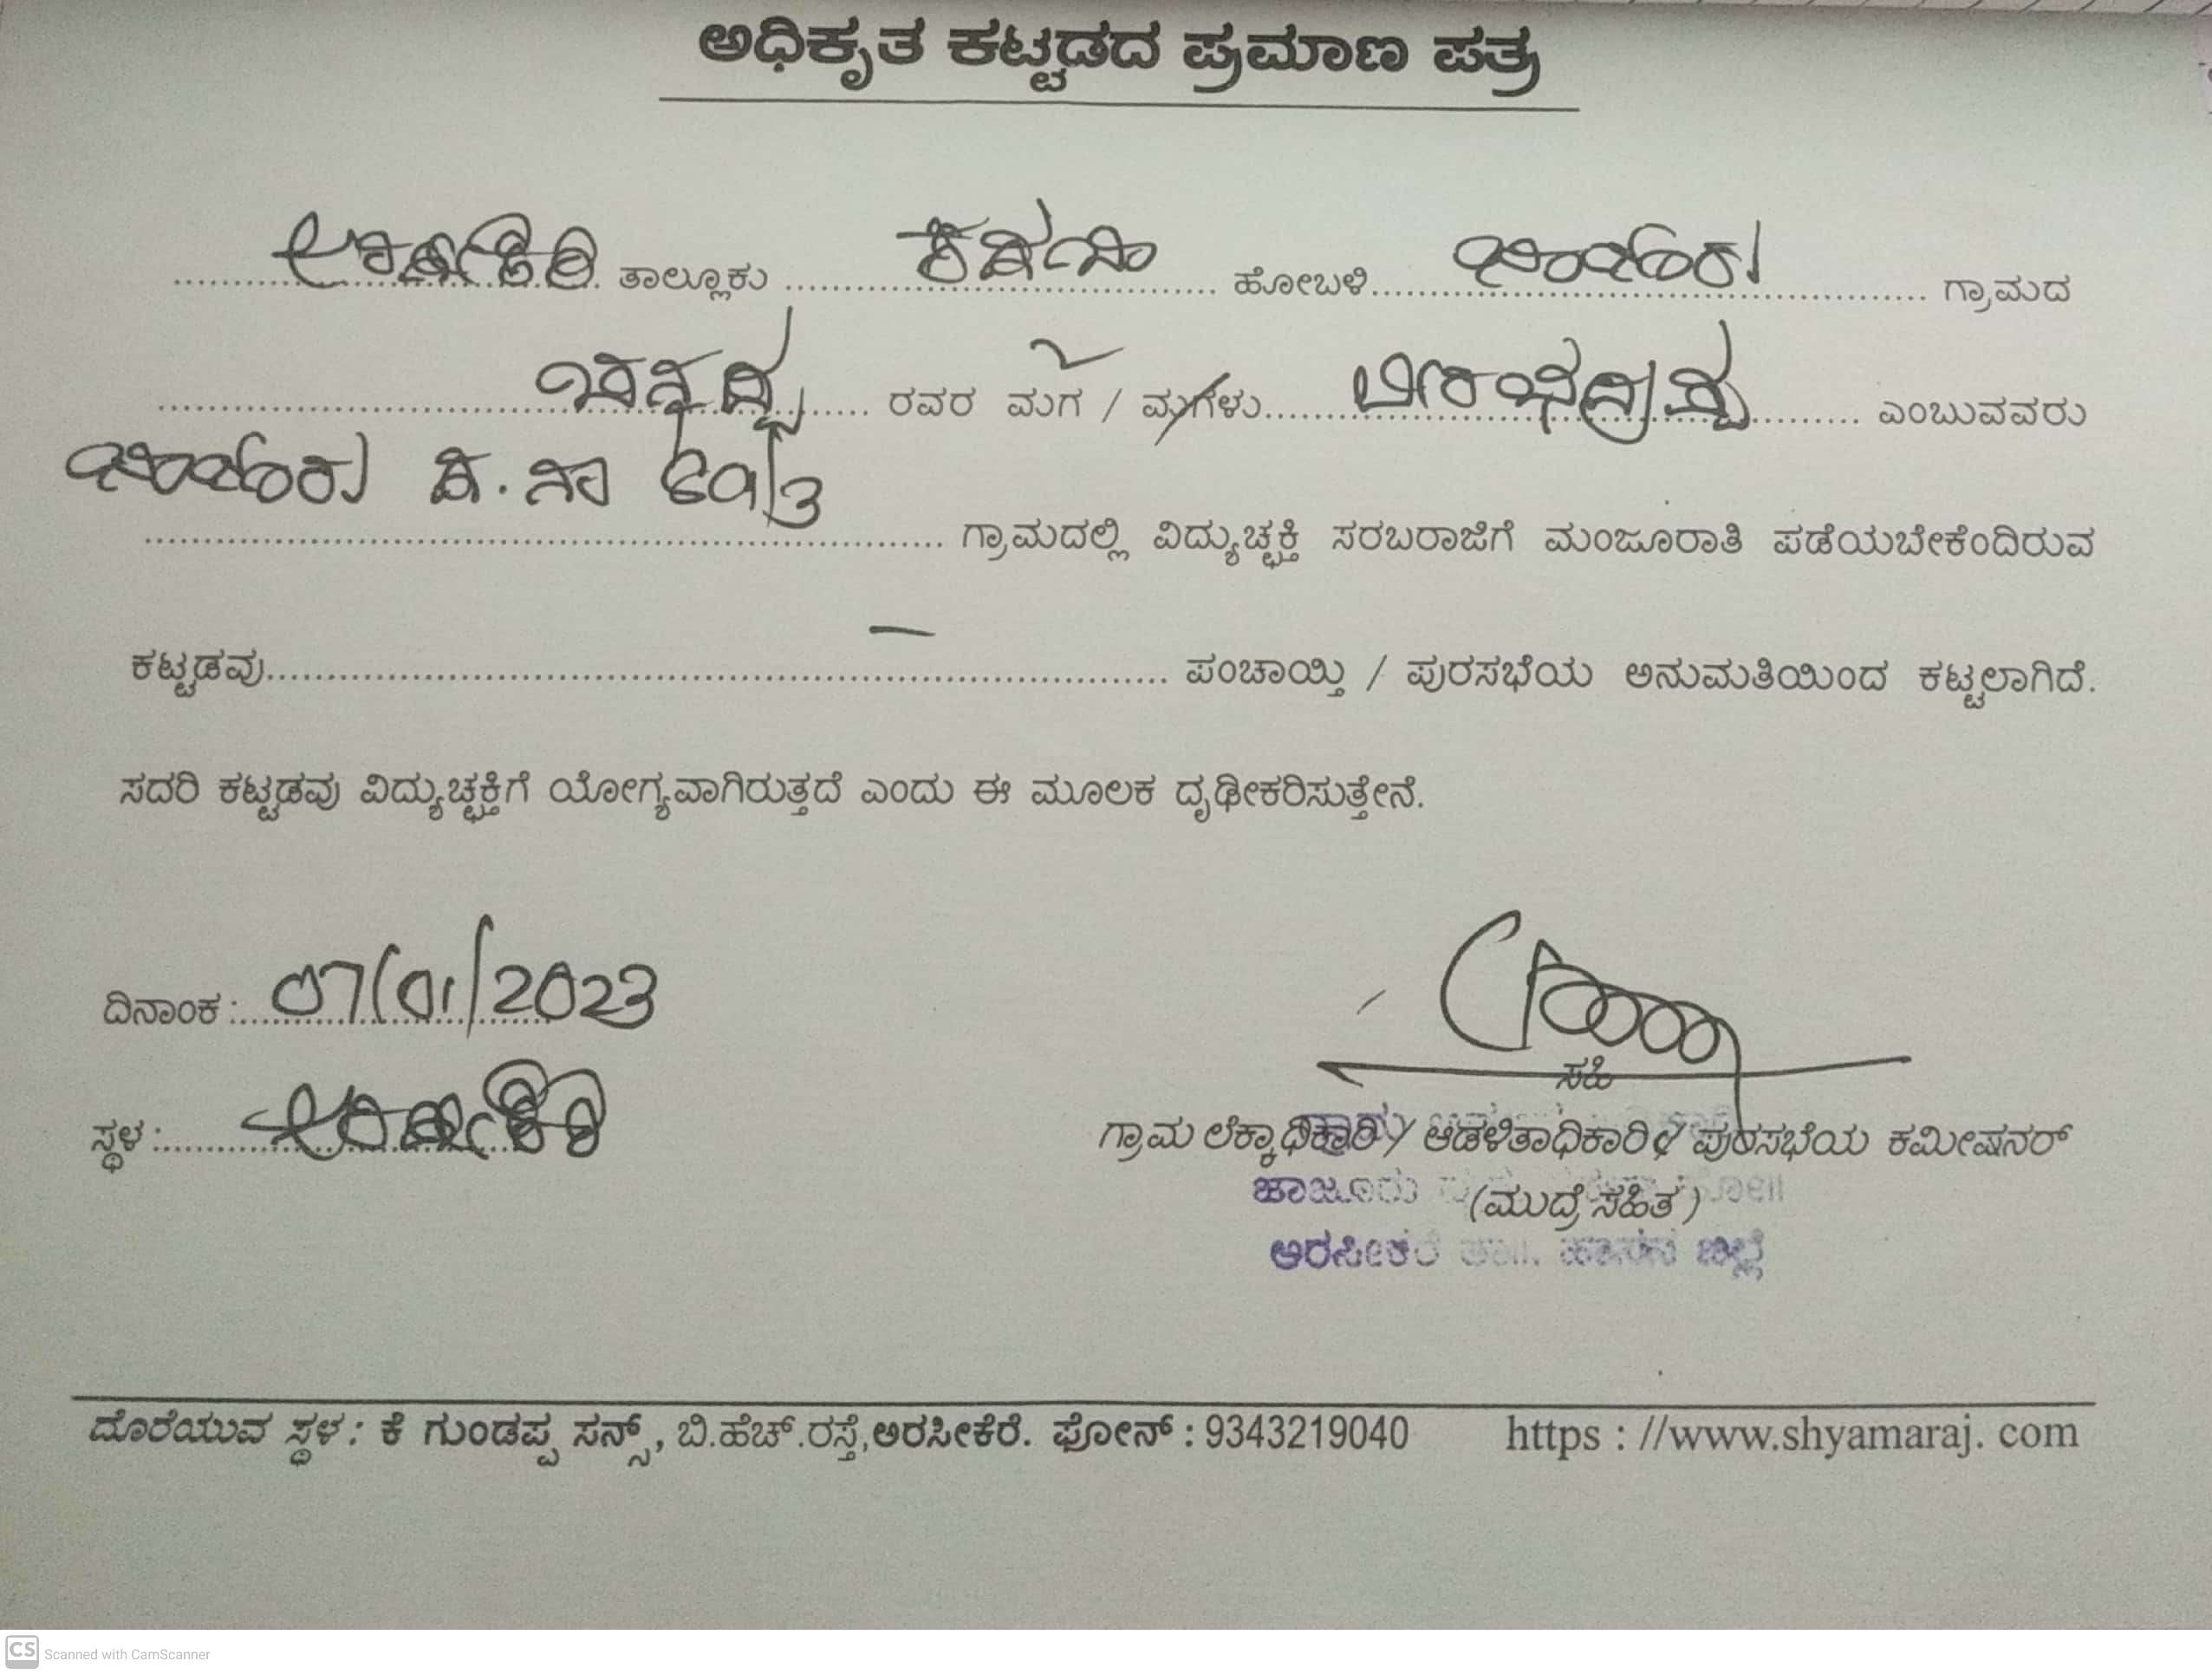 ಅಧಿಕೃತ ಕಟ್ಟಡದ ಪ್ರಮಾಣ ಪತ್ರ
ತಾಲ್ಲೂಕು ಕಸಬಾ ಹೋಬಳಿ ಗ್ರಾಮದ
ರವರ ಮಗ / ಮಗಳು ವೀರಭದ್ರಪ್ಪ ಎಂಬುವವರು
ಗ್ರಾಮದಲ್ಲಿ ವಿದ್ಯುಚ್ಛಕ್ತಿ ಸರಬರಾಜಿಗೆ ಮಂಜೂರಾತಿ ಪಡೆಯಬೇಕೆಂದಿರುವ
ಕಟ್ಟಡವು ಪಂಚಾಯ್ತಿ / ಪುರಸಭೆಯ ಅನುಮತಿಯಿಂದ ಕಟ್ಟಲಾಗಿದೆ.
ಸದರಿ ಕಟ್ಟಡವು ವಿದ್ಯುಚ್ಛಕ್ತಿಗೆ ಯೋಗ್ಯವಾಗಿರುತ್ತದೆ ಎಂದು ಈ ಮೂಲಕ ದೃಢೀಕರಿಸುತ್ತೇನೆ.
ದಿನಾಂಕ : 07/01/2023
ಸಹಿ
ಸ್ಥಳ : ಅರಸೀಕೆರೆ
ಗ್ರಾಮ ಲೆಕ್ಕಾಧಿಕಾರಿ / ಆಡಳಿತಾಧಿಕಾರಿ / ಪುರಸಭೆಯ ಕಮೀಷನರ್
(ಮುದ್ರೆ ಸಹಿತ)
ಅರಸೀಕೆರೆ ತಾ॥. ಹಾಸನ ಜಿಲ್ಲೆ
ದೊರೆಯುವ ಸ್ಥಳ: ಕೆ ಗುಂಡಪ್ಪ ಸನ್ಸ್, ಬಿ.ಹೆಚ್.ರಸ್ತೆ,ಅರಸೀಕೆರೆ. ಫೋನ್ : 9343219040 https : //www.shyamaraj. com
CS Scanned with CamScanner